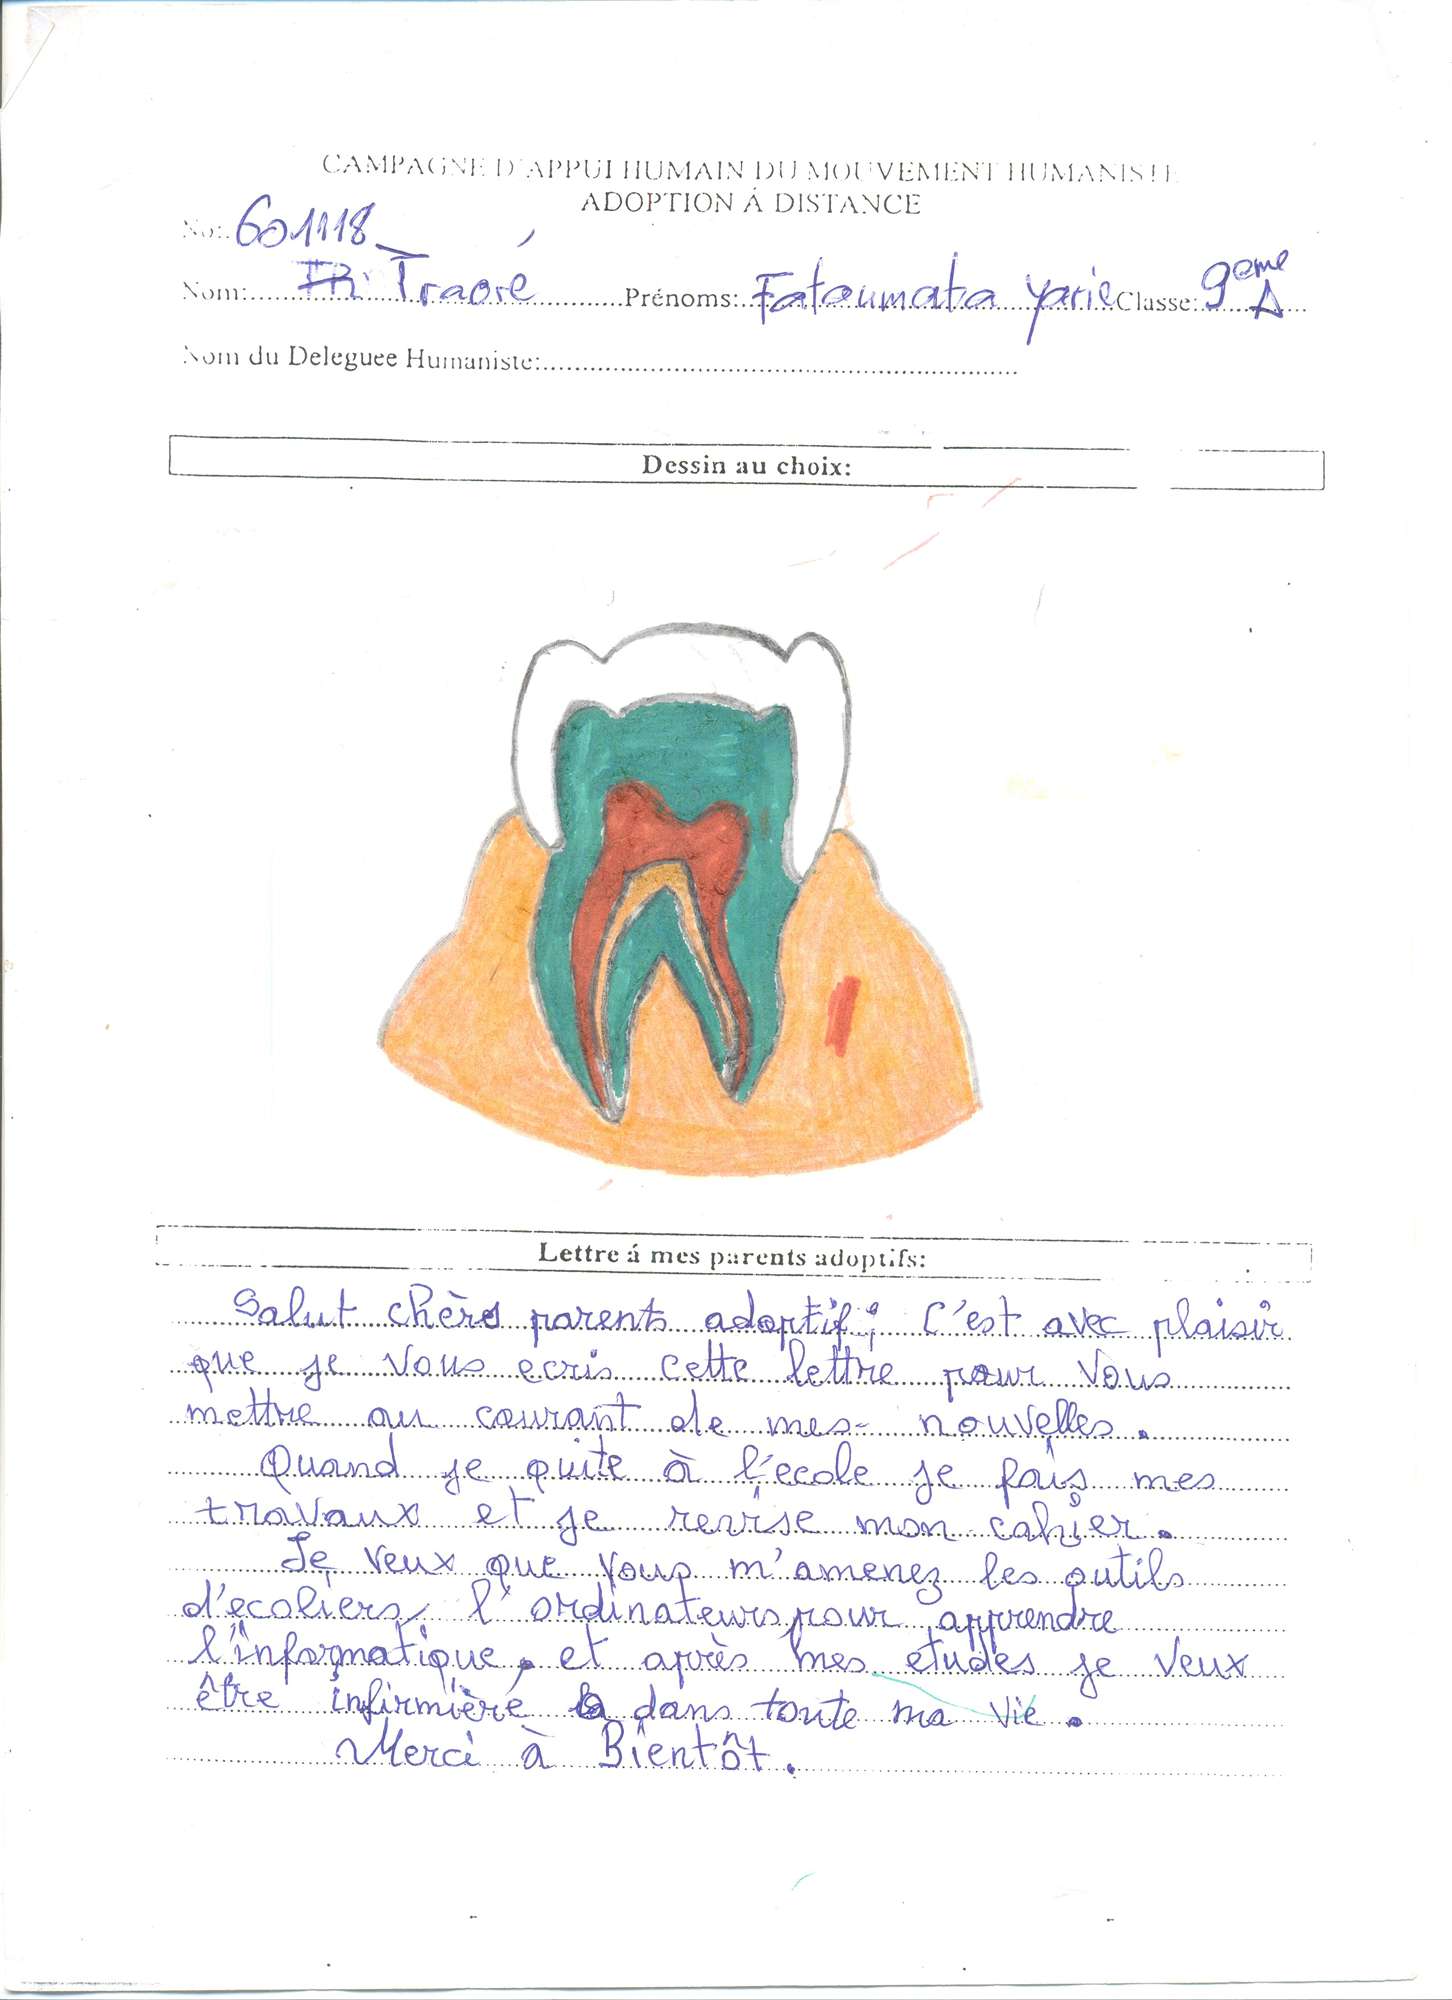 CAMPAGNE D'APPUI HUMAIN DU MOUVEMENT HUMANISTE
ADOPTION Á DISTANCE
No: 601118
Nom: Traoré Prénoms: Fatoumata Yarie Classe: 9eme A
Nom du Deleguee Humaniste:
Dessin au choix:
Lettre á mes parents adoptifs:
Salut chères parents adoptif; C'est avec plaisir
que je vous ecris cette lettre pour vous
mettre au courant de mes- nouvelles.
Quand je quite à l'ecole je fais mes
travaux et je revise mon cahier.
Je veux que vous m'amenez les outils
d'ecoliers, l'ordinateurs pour apprendre
l'informatique, et après mes etudes je veux
être infirmière dans toute ma vie.
Merci à Bientôt.